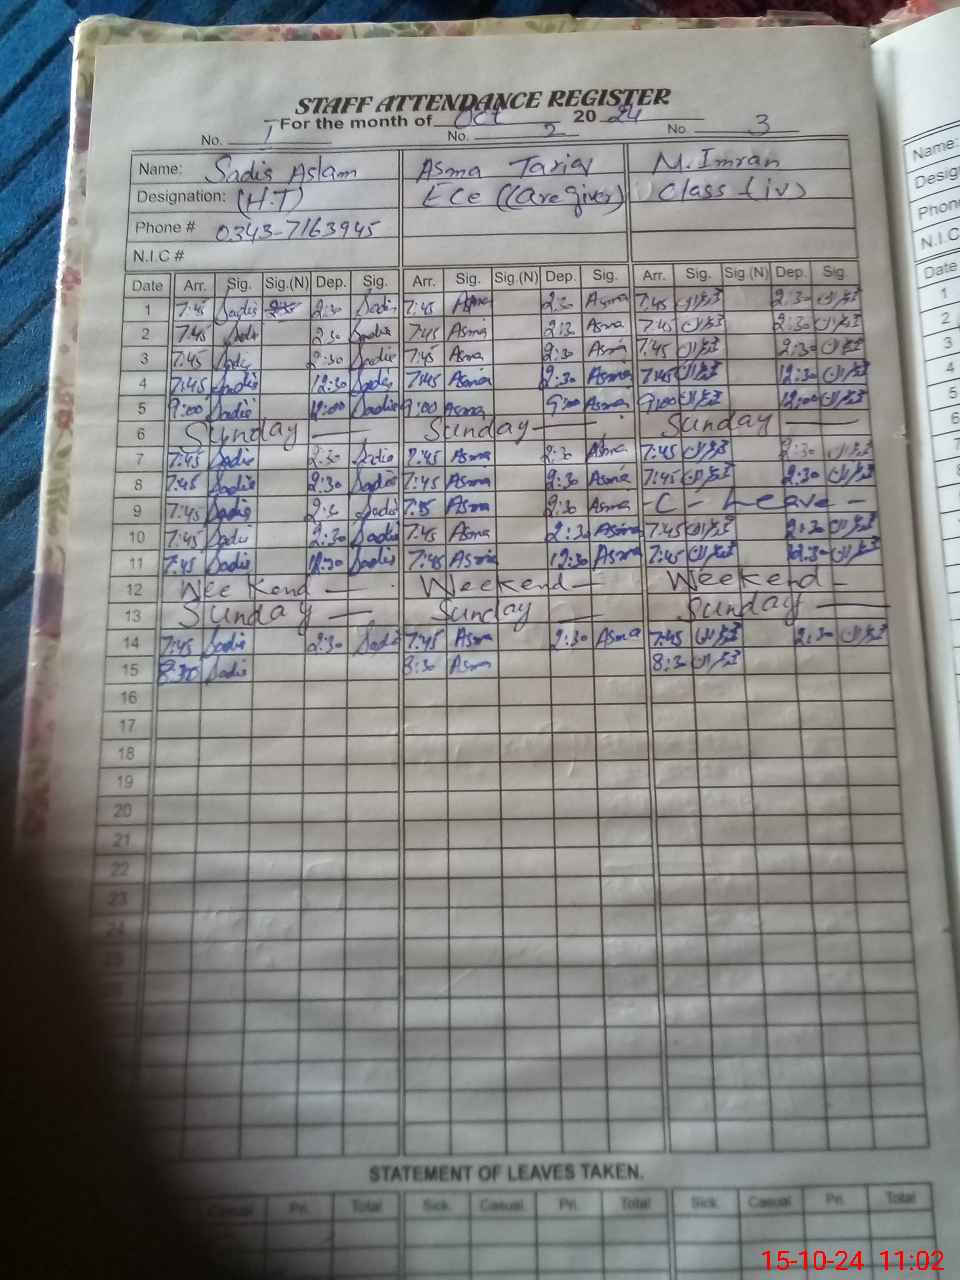 STAFF ATTENDANCE REGISTER
For the month of Oct 20 24
No. 1 No. 2 No. 3
Name: Sadis Aslam Asma Tariq M. Imran
Designation: (H.T) ECe ((are giver) Class (iv)
Phone # 0343-7163945
N.I.C #
Date Arr. Sig. Sig.(N) Dep. Sig. Arr. Sig. Sig.(N) Dep. Sig. Arr. Sig. Sig.(N) Dep. Sig
1 7:45 Sadis 2:30 Sadis 7:45 Asma 2:30 Asma 7:45 2:30
2 7:45 Sadis 2:30 Sadis 7:45 Asma 2:30 Asma 7:45 2:30
3 7:45 Sadis 2:30 Sadis 7:45 Asma 2:30 Asma 7:45 2:30
4 7:45 Sadis 12:30 Sadis 7:45 Asma 12:30 Asma 7:45 12:30
5 9:00 Sadis 12:00 Sadis 9:00 Asma 9:00 Asma 9:00 12:00
6 Sunday — Sunday — Sunday —
7 7:45 Sadis 2:30 Sadis 7:45 Asma 2:30 Asma 7:45 2:30
8 7:45 Sadis 2:30 Sadis 7:45 Asma 2:30 Asma 7:45 2:30
9 7:45 Sadis 2:30 Sadis Asma 2:30 Asma - C - Leave -
10 7:45 Sadis 2:30 Sadis 7:45 Asma 2:30 Asma 7:45 2:30
11 7:45 Sadis 12:30 Sadis 7:45 Asma 12:30 Asma 7:45 12:30
12 Wee Kend — Weekend — Weekend -
13 Sunday — Sunday — Sunday —
14 7:45 Sadis 2:30 Sadis 7:45 Asma 2:30 Asma 7:45 2:30
15 8:30 Sadis 8:30 Asma 8:30
16
17
18
19
20
21
22
23
24
25
STATEMENT OF LEAVES TAKEN.
Casual Pri. Total Sick. Casual Pri. Total Sick. Casual Pri. Total
Name:
Desig
Phon
N.I.C
Date
1
2
3
4
5
6
7
15-10-24 11:02